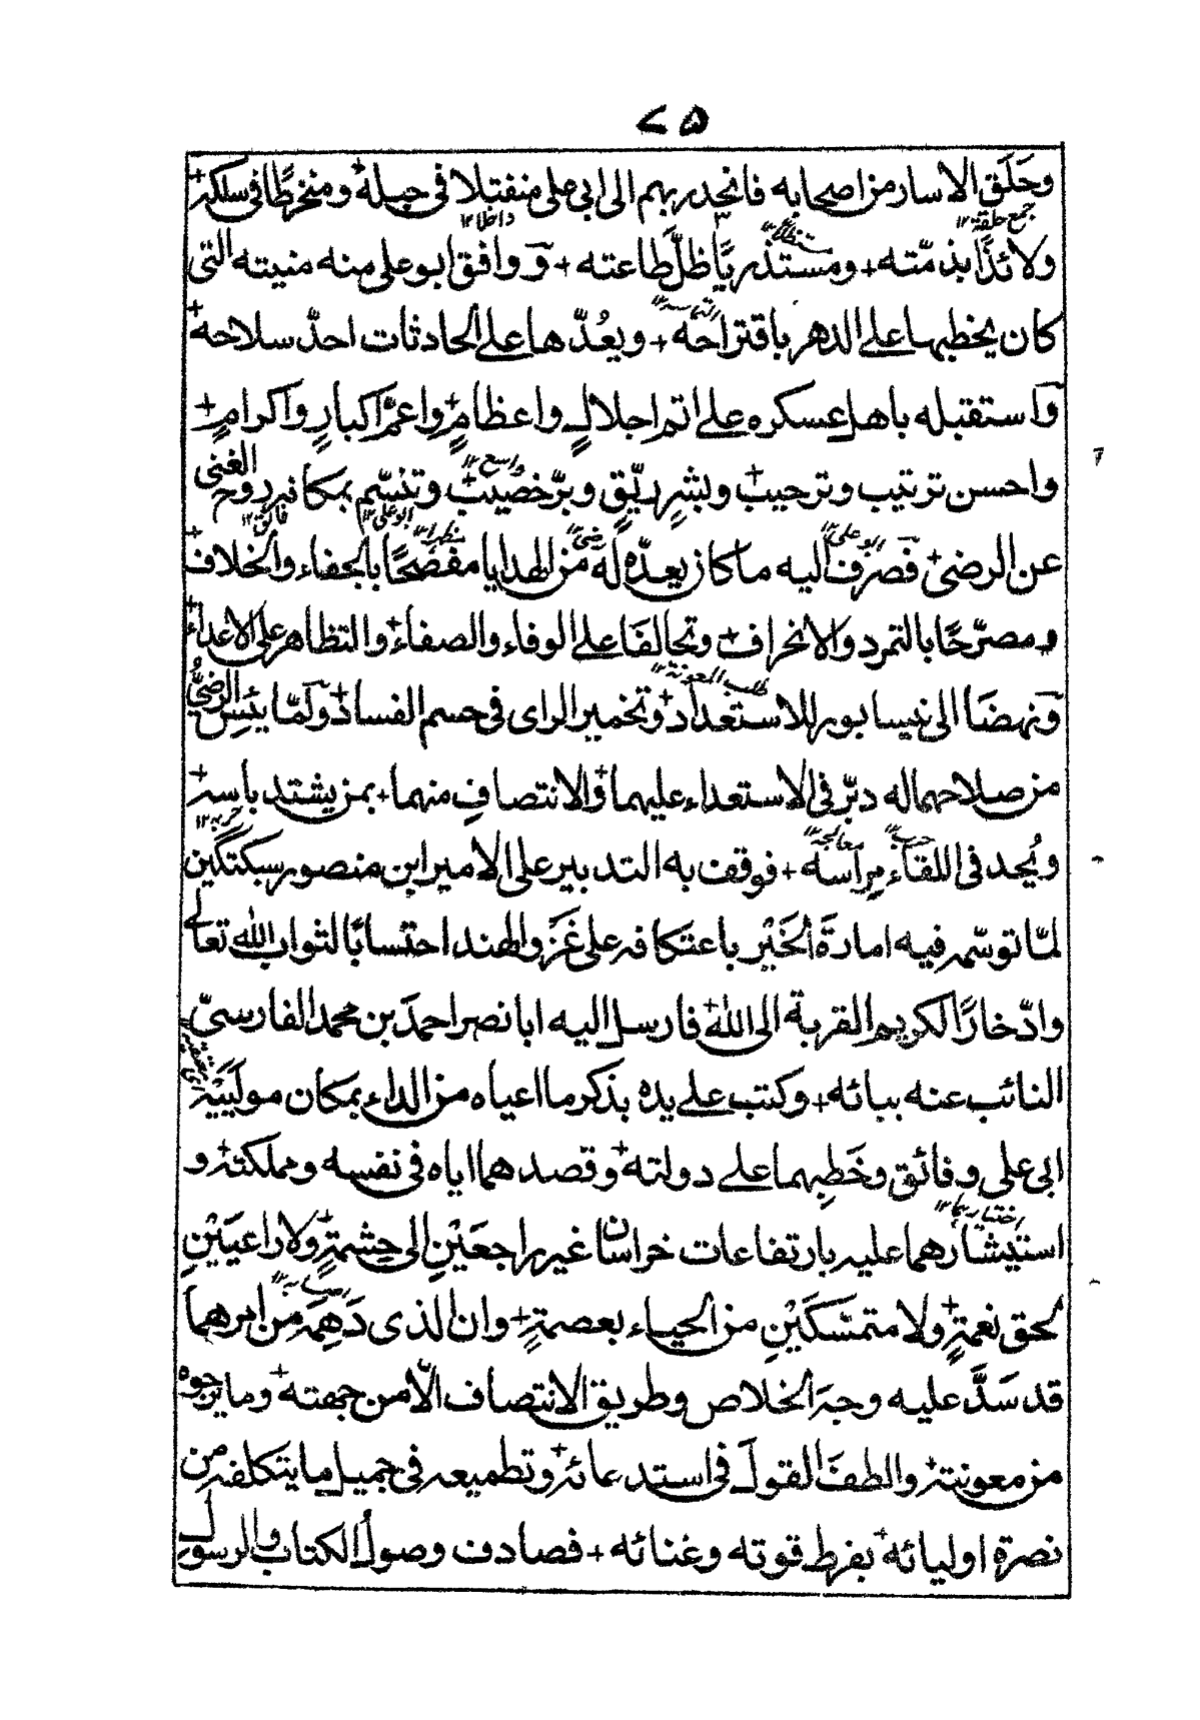 ٧٥
وحَلَق الاسار من اصحابه فانحدر بهم الى ابى على منفتلا فى حبله + ومنخرطا فى سلكه +
جمع حلقة ١٢ داخلا ١٢
ولائذًا بذمّته + ومستذريًا ظلّ طاعته + ووافق ابو على منه منيته التى
كان يخطبها على الدهر باقتراحه + ويعُدّها على الحادثات احدّ سلاحه +
واستقبله باهل عسكره على اتم اجلالٍ واعظامٍ + واعمّ اكبارٍ واكرامٍ +
واحسن ترتيب وترحيب + وبشرٍ ريّقٍ وبرّ خصيب + وتنسّم بمكانه روح الغنى
واسع ١٢
عن الرضى + فصرف اليه ما كان يعدّه له من الهدايا مفصحًا بالجفاء والخلاف +
ابو على ١٢ رضى ١٢ ابو على ١٢ فائق ١٢
ومصرّحًا بالتمرد والانحراف + وتحالفا على الوفاء والصفاء + والتظاهر على الاعداء +
ونهضَا الى نيسابور للاستعداد + وتخمير الراى فى حسم الفساد + ولمّا يئس الرضىُّ
طلب المعونة ١٢
من صلاحهما له دبّر فى الاستعداء عليهما + والانتصاف منهما + بمن يشتد باسه +
ويُحمد فى اللقاء مِراسه + فوقف به التدبير على الامير ابن منصور سبكتگين
حرب ١٢ معالجة ١٢
لمّا توسّم فيه امارةَ الخَيْر باعتكافه على غَزو الهند احتسابًا لثواب الله تعالى
وادّخارًا لكريم القربة الى الله + فارسل اليه ابا نصر احمدَ بن محمد الفارسىّ
النائب عنه ببابه + وكتب على يده بذكر ما اعياه من الداء بمكان مولَيَيْه
ابى على وفائق وخَطبِهما على دولته + وقصدهما اياه فى نفسه ومملكته + و
استيثارهما عليه بارتفاعات خراسان غير راجعَيْنِ الى حِشمةٍ + ولا راعيَيْنِ
لحق نعمةٍ + ولا متمسّكَيْنِ من الحياء بعصمةٍ + وان الذى دَهِمَه من امرهما
قد سَدَّ عليه وجهَ الخلاص وطريق الانتصاف الّا من جهته + وما يرجوه
من معونته + والطفَ القولَ فى استدعائه + وتطميعه فى جميل ما يتكلفه من
نصرة اوليائه + بفرط قوته وغنائه + فصادف وصولُ الكتاب والرسول